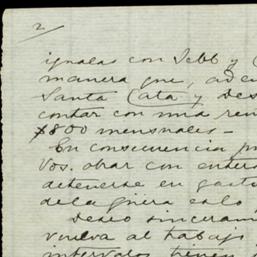 2
igualas con Sebb y C
manera que, ade
Santa Cata y des
contar con una ren
$800 mensuales –
En consecuencia pu
Vos. obrar con entera
detenerse en gasto
de la
Deseo sincera
vuelva al trabajo
intervalos tienen